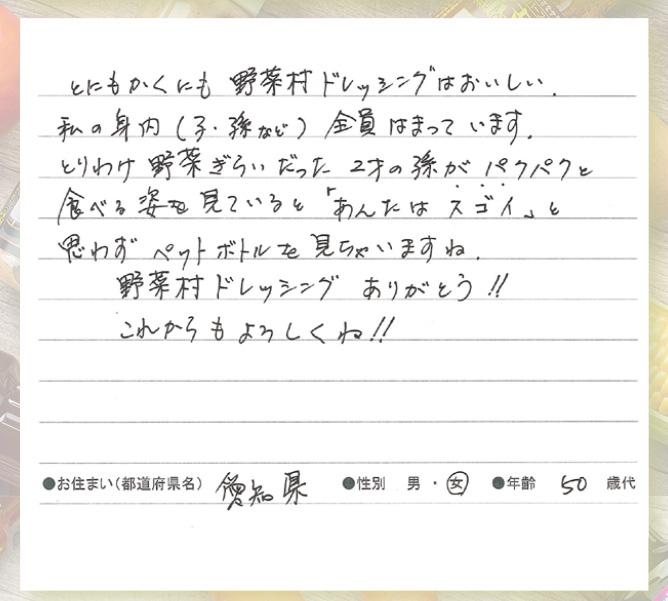 とにもかくにも 野菜村ドレッシングはおいしい.
私の身内(子・孫など) 全員はまっています.
とりわけ 野菜ぎらいだった 2才の孫が パクパクと
食べる姿を見ていると「あんたは スゴイ」と
思わず ペットボトルを見ちゃいますね.
野菜村ドレッシング ありがとう!!
これからも よろしくね!!
●お住まい(都道府県名) 愛知県 ●性別 男・女 ●年齢 50 歳代